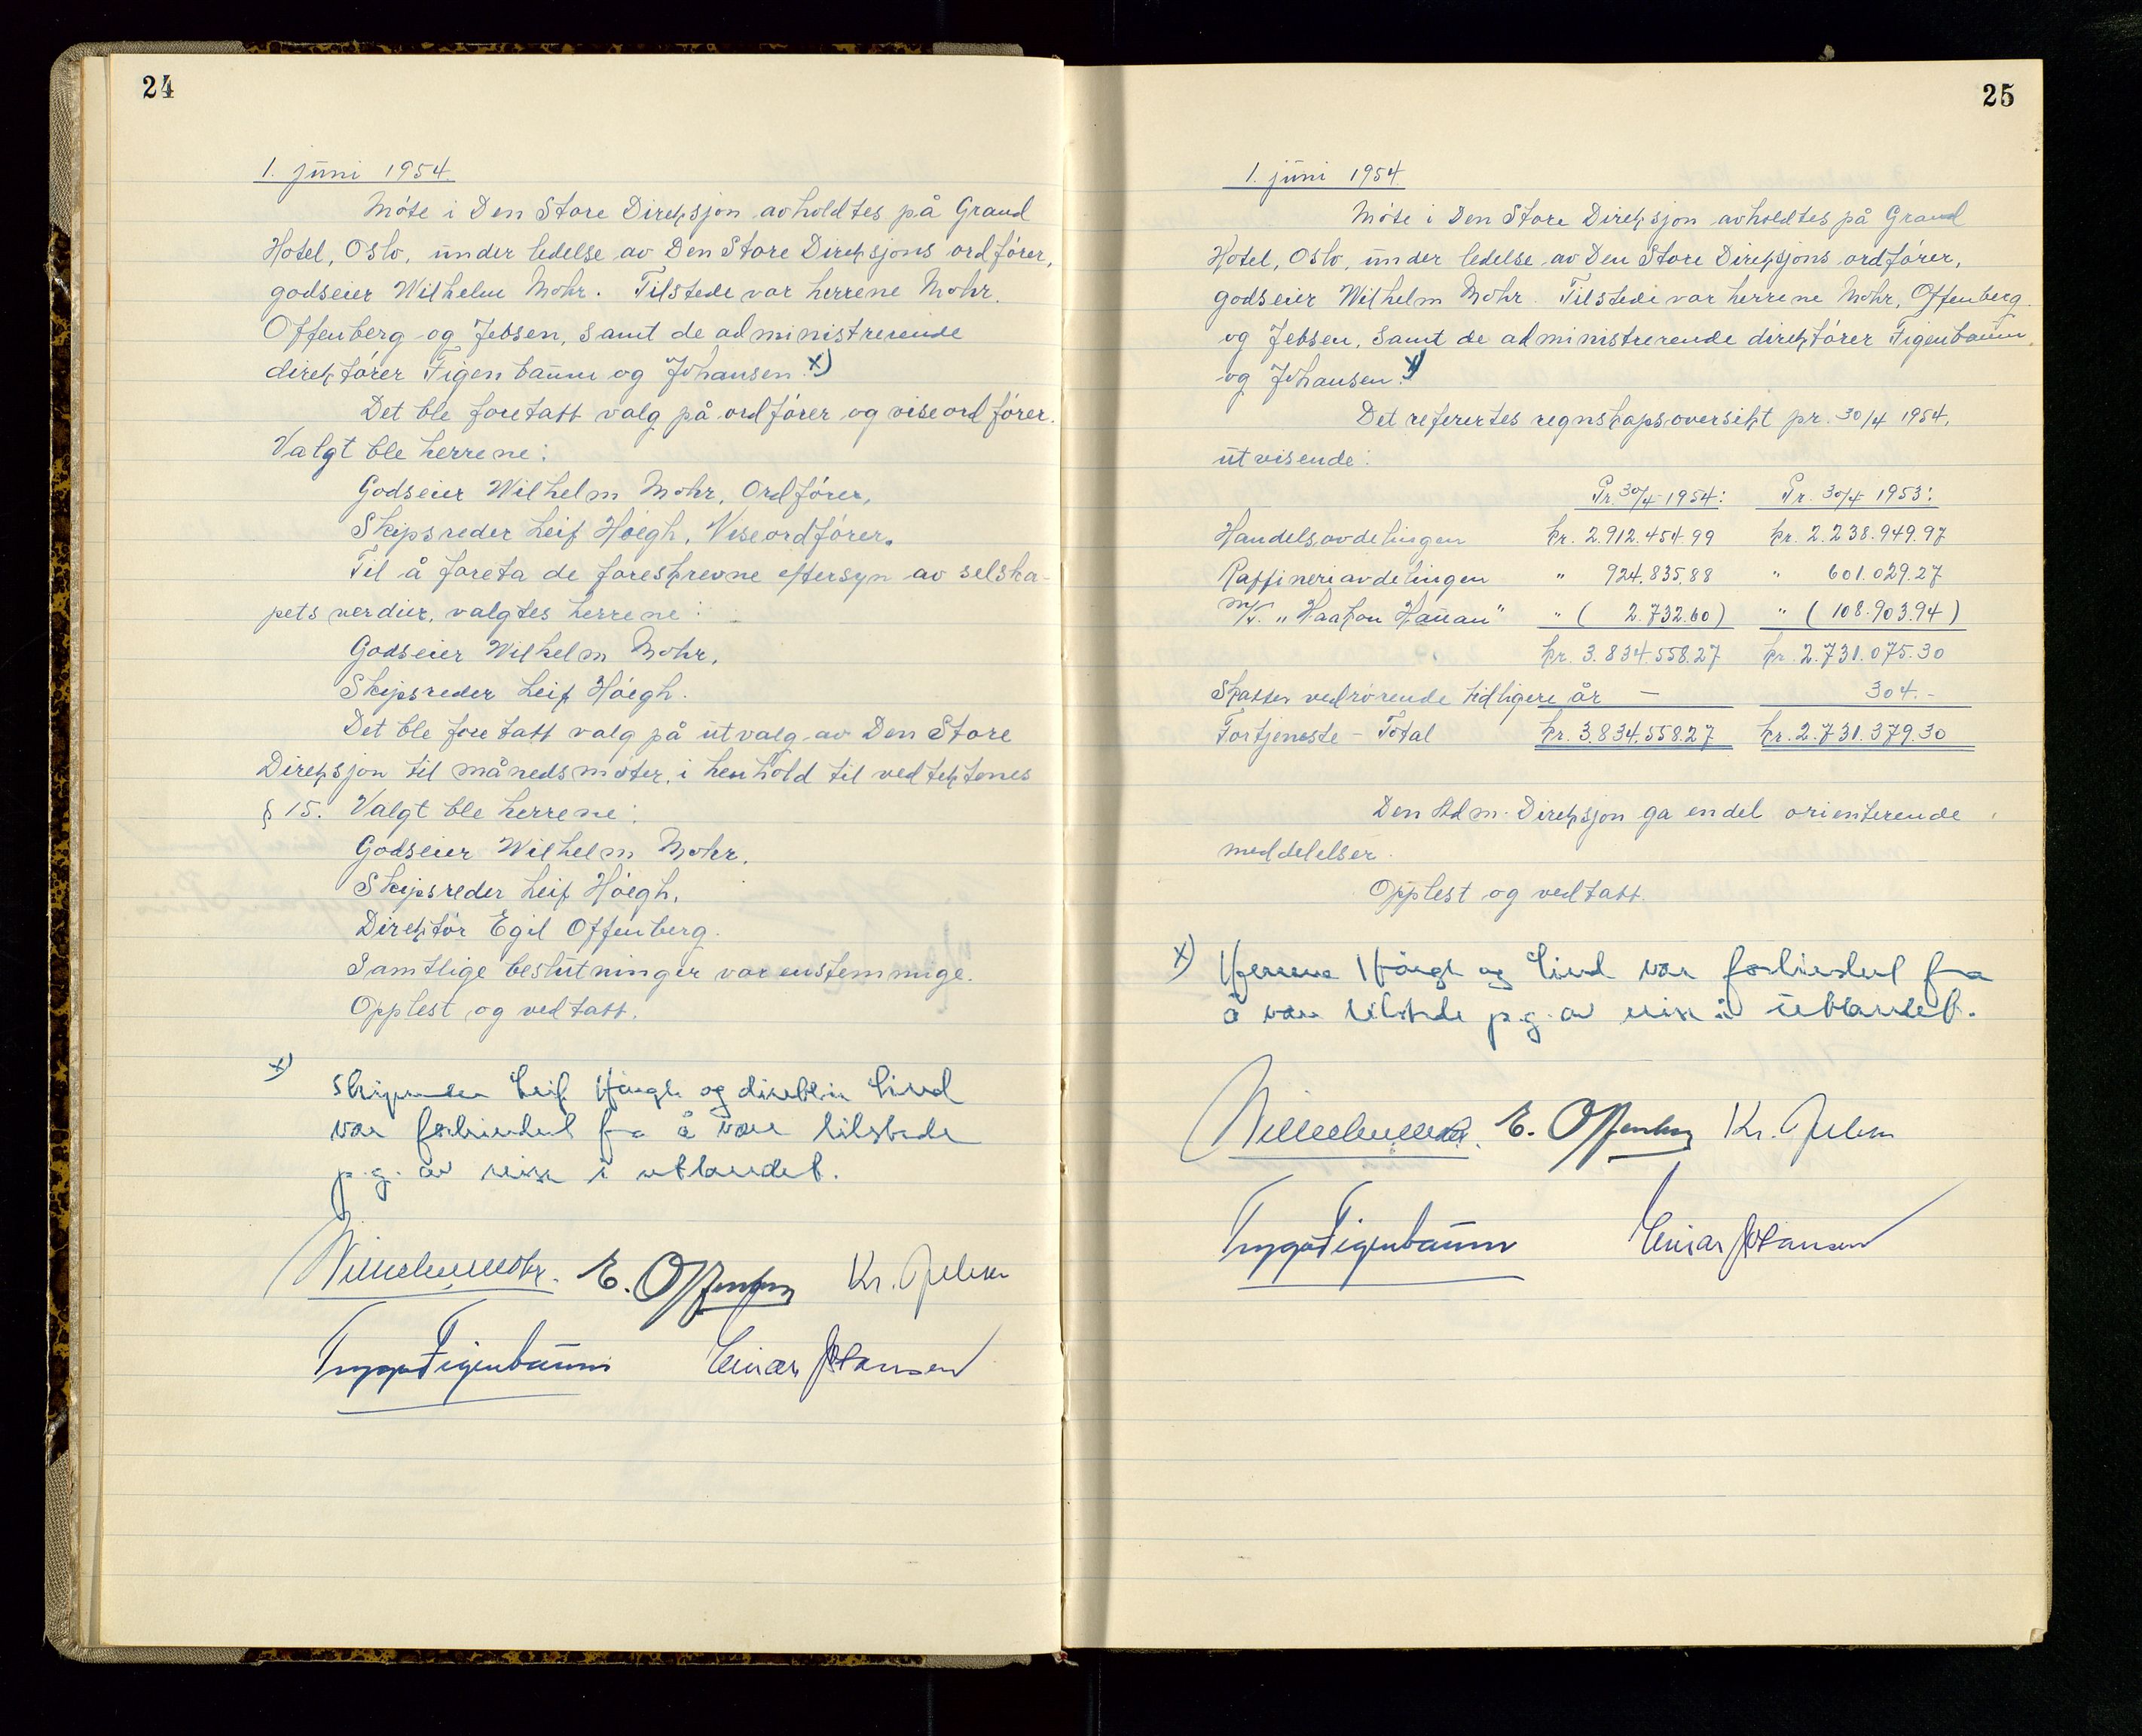 24
1. juni 1954.
Møte i Den Store Direksjon avholdtes på Grand
Hotel, Oslo, under ledelse av Den Store Direksjons ordfører,
godseier Wilhelm Mohr. Tilstede var herrene Mohr,
Offenberg og Jebsen, samt de administrerende
direktører Figenbaum og Johansen. x)
Det ble foretatt valg på ordfører og viseordfører.
Valgt ble herrene:
Godseier Wilhelm Mohr, Ordfører,
Skipsreder Leif Höegh, Viseordfører.
Til å foreta de foreskrevne eftersyn av selska-
pets verdier, valgtes herrene:
Godseier Wilhelm Mohr,
Skipsreder Leif Höegh.
Det ble foretatt valg på utvalg av Den Store
Direksjon til månedsmøter, i henhold til vedtektenes
§ 15. Valgt ble herrene:
Godseier Wilhelm Mohr,
Skipsreder Leif Höegh,
Direktør Egil Offenberg.
Samtlige beslutninger var enstemmige.
Opplest og vedtatt.
x) Skipsreder Leif Höegh og direktør Lind
var forhindret fra å være tilstede
p.g. av reise i utlandet.
Wilhelm Mohr. E. Offenberg Kr. Jebsen
Trygve Figenbaum Einar Johansen
25
1. juni 1954.
Møte i Den Store Direksjon avholdtes på Grand
Hotel, Oslo, under ledelse av Den Store Direksjons ordfører,
godseier Wilhelm Mohr. Tilstede var herrene Mohr, Offenberg
og Jebsen, samt de administrerende direktører Figenbaum
og Johansen. x)
Det refertes regnskapsoversikt pr. 30/4 1954,
utvisende:
Pr. 30/4 1954: Pr. 30/4 1953:
Handelsavdelingen kr. 2.912.454.99 kr. 2.238.949.97
Raffineriavdelingen " 924.835.88 " 601.029.27
M/T. "Haakon Hauan" " ( 2.732.60) " ( 108.903.94)
kr. 3.834.558.27 kr. 2.731.075.30
Skatter vedrørende tidligere år — 304.-
Fortjeneste - Total kr. 3.834.558.27 kr. 2.731.379.30
Den Adm. Direksjon ga endel orienterende
meddelelser.
Opplest og vedtatt.
x) Herrene Höegh og Lind var forhindret fra
å være tilstede p.g. av reise i utlandet.
Wilhelm Mohr. E. Offenberg Kr. Jebsen
Trygve Figenbaum Einar Johansen